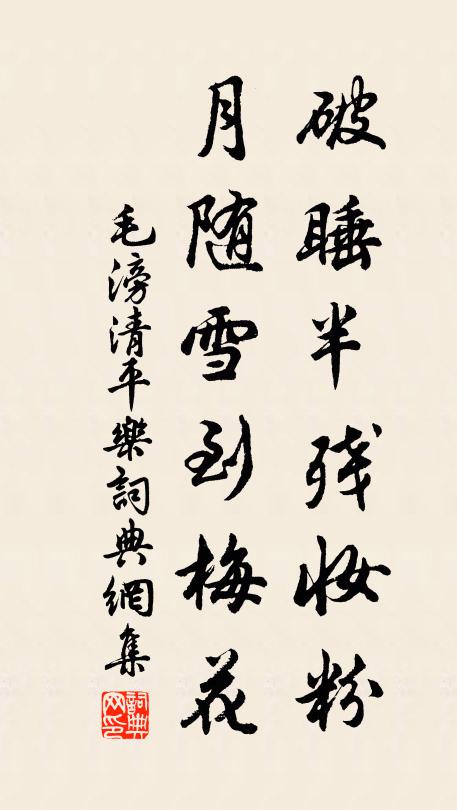 破睡半残妆粉
月随雪到梅花
毛滂清平樂詞典網集
詞典网印